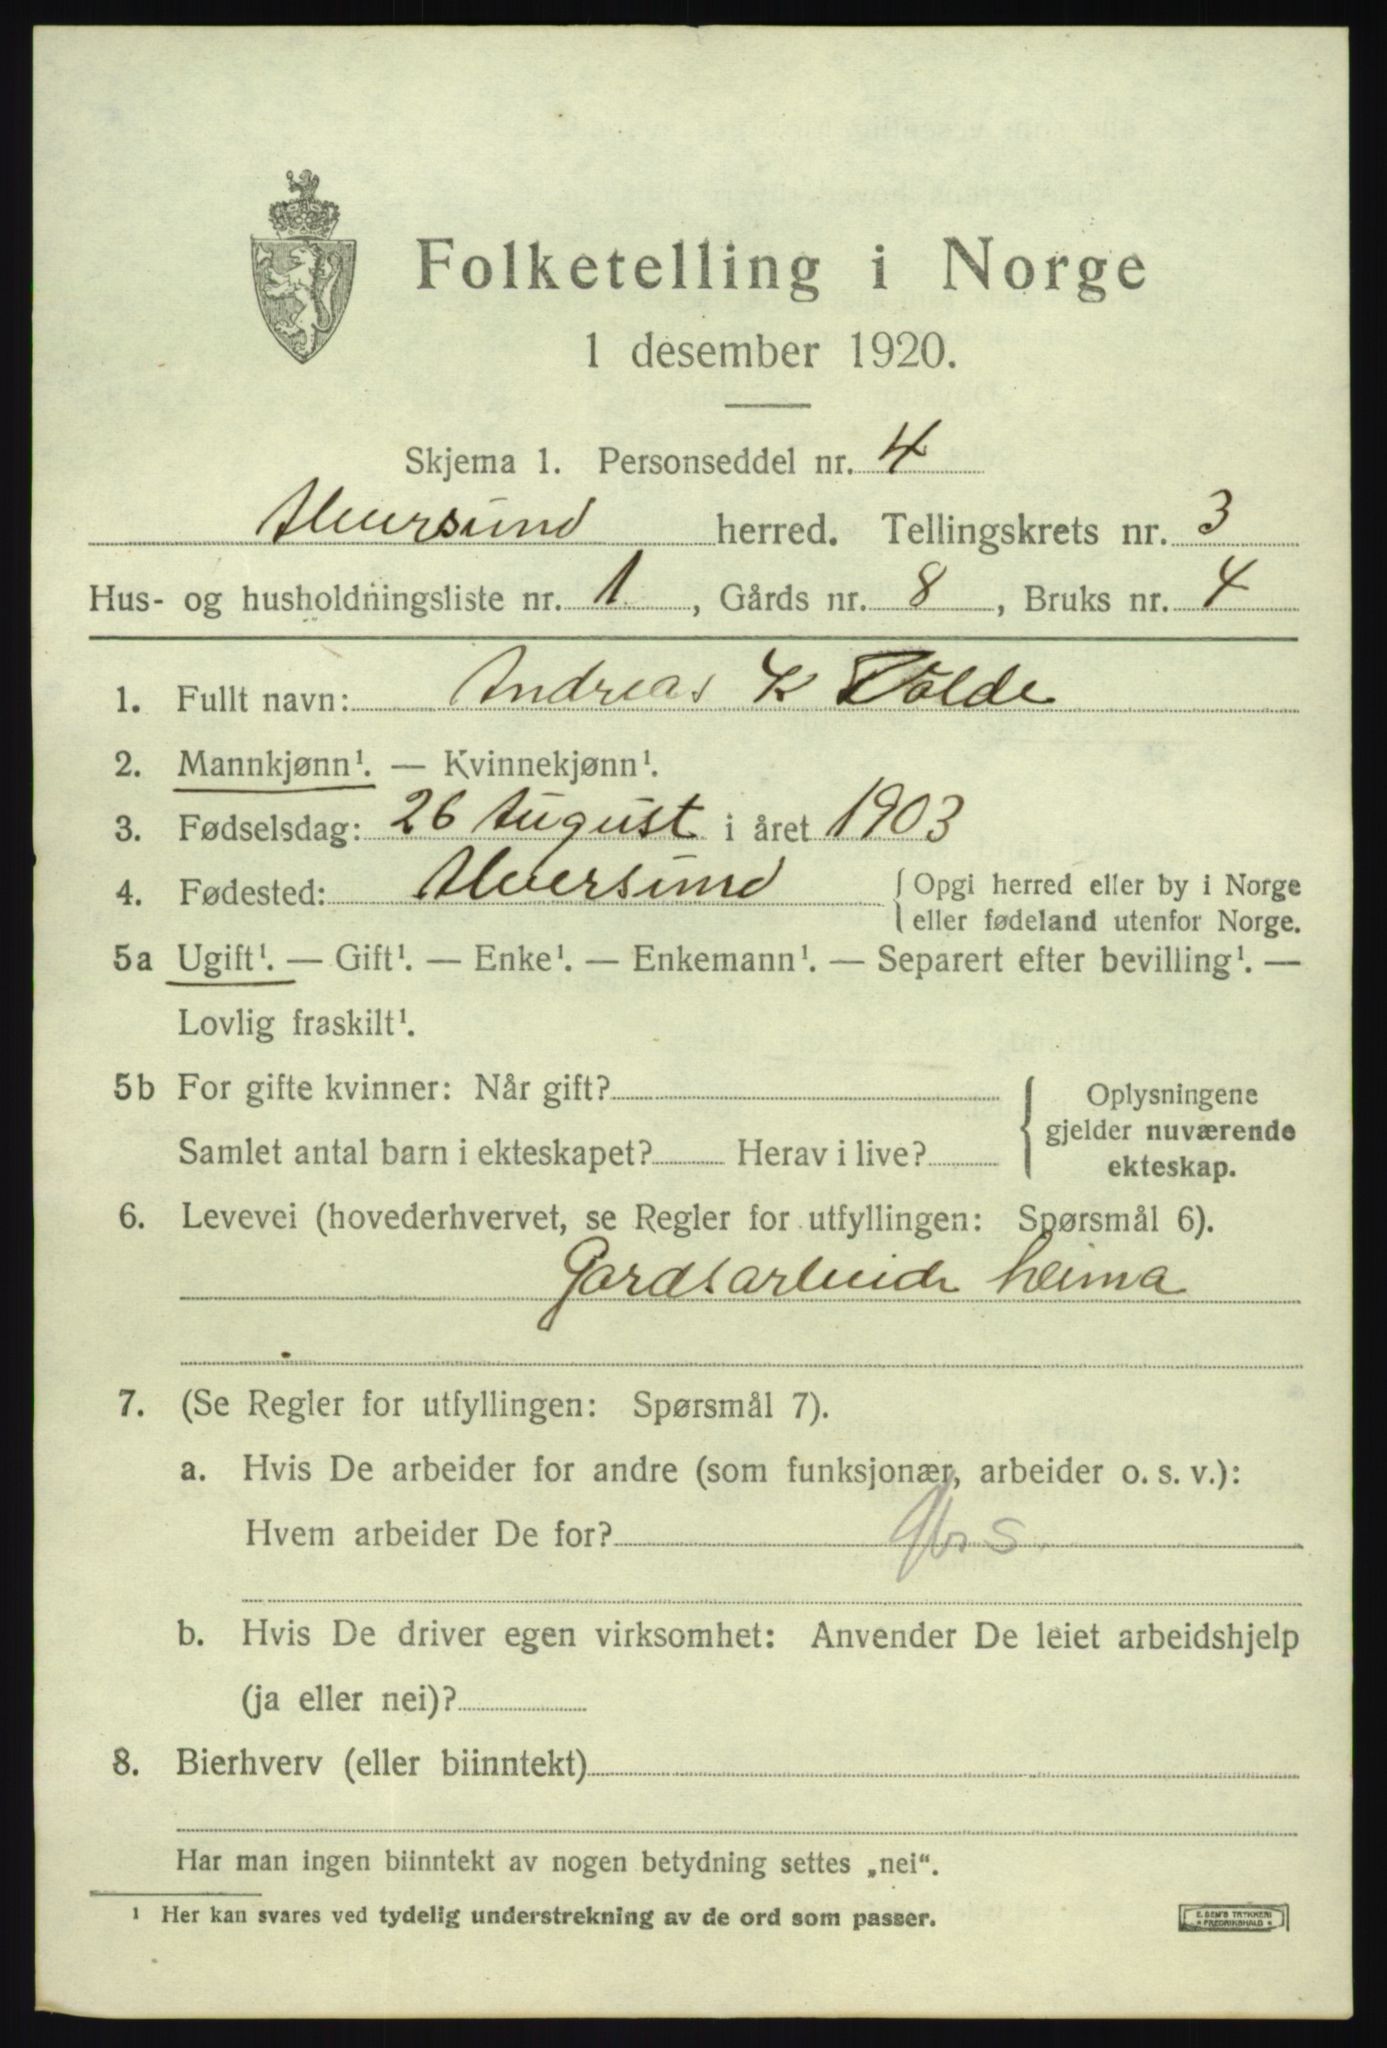 Folketelling i Norge
1 desember 1920.
Skjema 1. Personseddel nr. 4
Alversund herred. Tellingskrets nr. 3
Hus- og husholdningsliste nr. 1, Gårds nr. 8, Bruks nr. 4
1. Fullt navn: Andreas K
2. Mannkjønn¹. — Kvinnekjønn¹.
3. Fødselsdag: 26 August i året 1903
4. Fødested: Alversund { Opgi herred eller by i Norge
eller fødeland utenfor Norge.
5a Ugift¹. — Gift¹. — Enke¹. — Enkemann¹. — Separert efter bevilling¹. —
Lovlig fraskilt¹.
5b For gifte kvinner: Når gift?
Samlet antal barn i ekteskapet? Herav i live?
{ Oplysningene
gjelder nuværende
ekteskap.
6. Levevei (hovederhvervet, se Regler for utfyllingen: Spørsmål 6).
Gardsarbeide heima
7. (Se Regler for utfyllingen: Spørsmål 7).
a. Hvis De arbeider for andre (som funksjonær, arbeider o. s. v.):
Hvem arbeider De for?
b. Hvis De driver egen virksomhet: Anvender De leiet arbeidshjelp
(ja eller nei)?
8. Bierhverv (eller biinntekt)
Har man ingen biinntekt av nogen betydning settes „nei“.
¹ Her kan svares ved tydelig understrekning av de ord som passer.
E. SEM'S TRYKKERI
FREDRIKSHALD